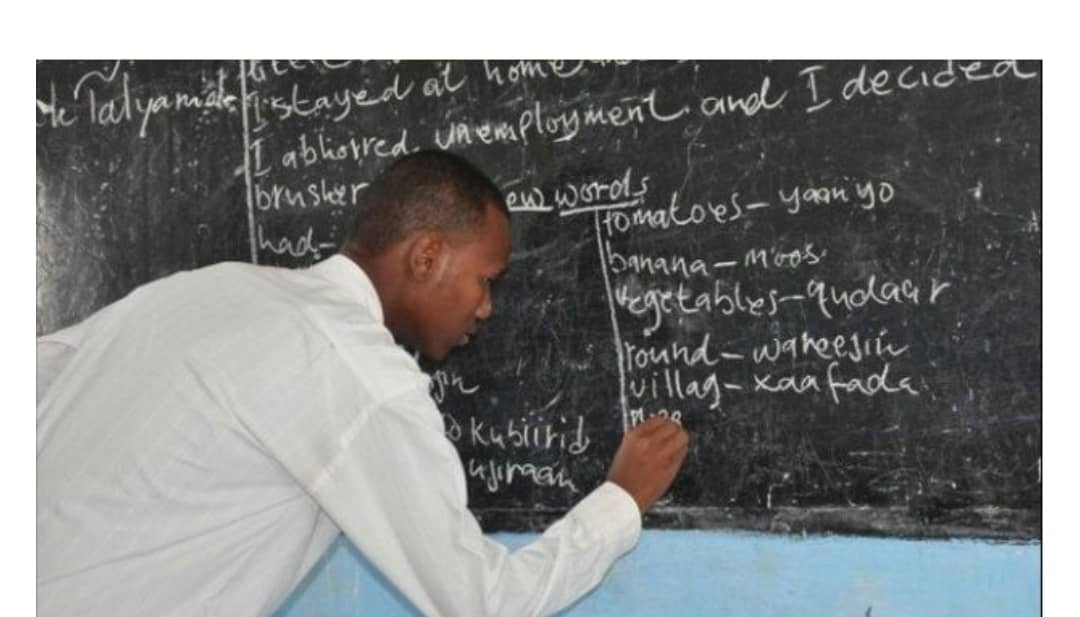 Talyamate
I stayed at home
I abhorred unemployment and I decided
brusher
ew words
had-
tomatoes - yaanyo
banana - moos
vegetables - qudaar
round - wareejin
villag - xaafada
jin
Kubiirid
ujiraan